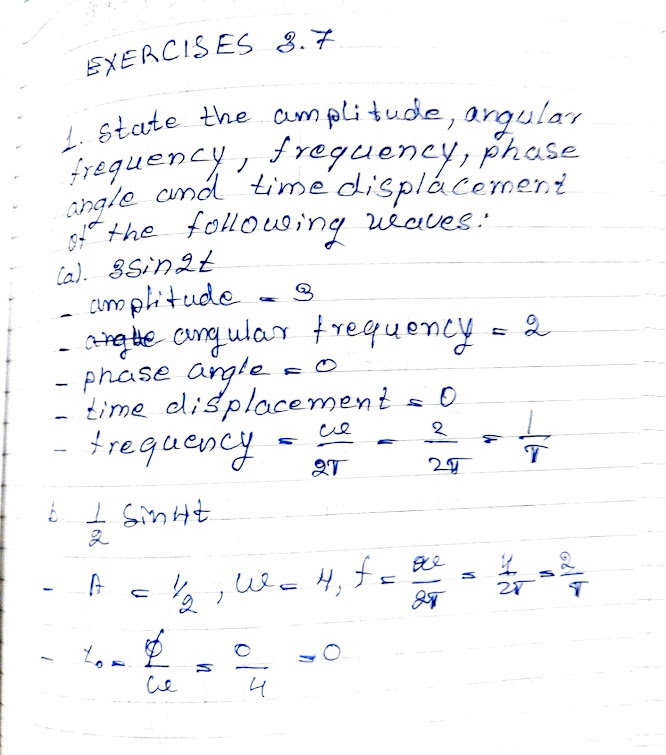 EXERCISES 3.7
1. State the amplitude, angular
frequency, frequency, phase
angle and time displacement
of the following waves:
(a). 3sin2t
- amplitude = 3
- angular frequency = 2
- phase angle = 0
- time displacement = 0
- frequency = ω/2π = 2/2π = 1/π
b. 1/2 sin4t
- A = 1/2, ω = 4, f = ω/2π = 4/2π = 2/π
- t₀ = ϕ/ω = 0/4 = 0